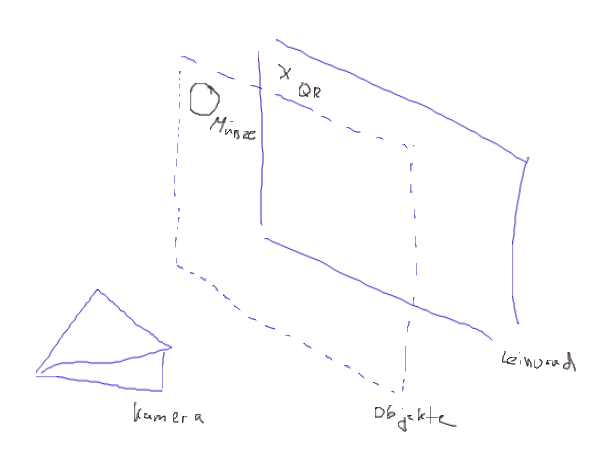 X
QR
Münze
Leinwand
Kamera
Objekte